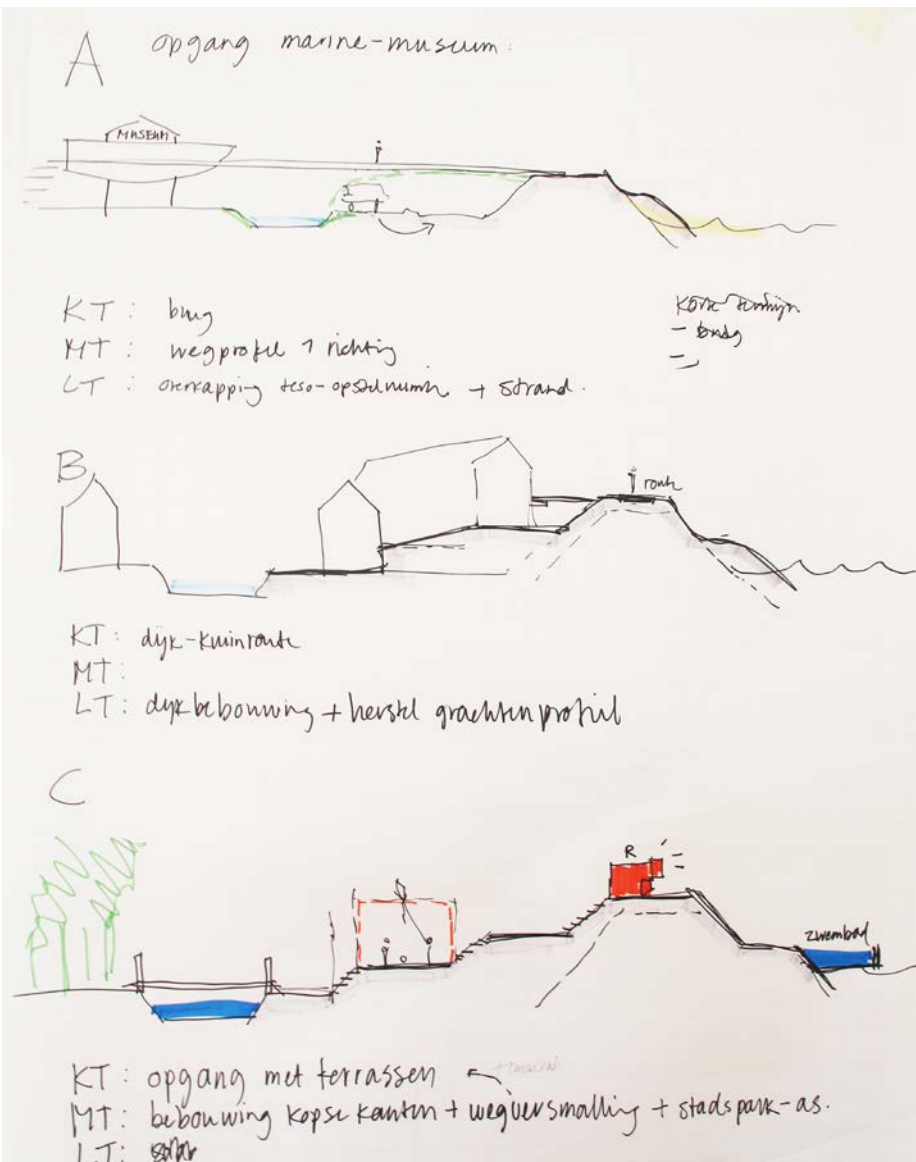 A opgang marine-museum:
MUSEUM
KT: brug
MT: wegprofiel 1 richting
LT: overkapping teso-opstelruimte + strand.
Korte termijn
- brug
B
route
KT: dijk-kruinroute
MT:
LT: dijkbebouwing + herstel grachtenprofiel
C
R
zwembad
KT: opgang met terrassen
MT: bebouwing kopse kanten + wegversmalling + stadspark-as.
LT: